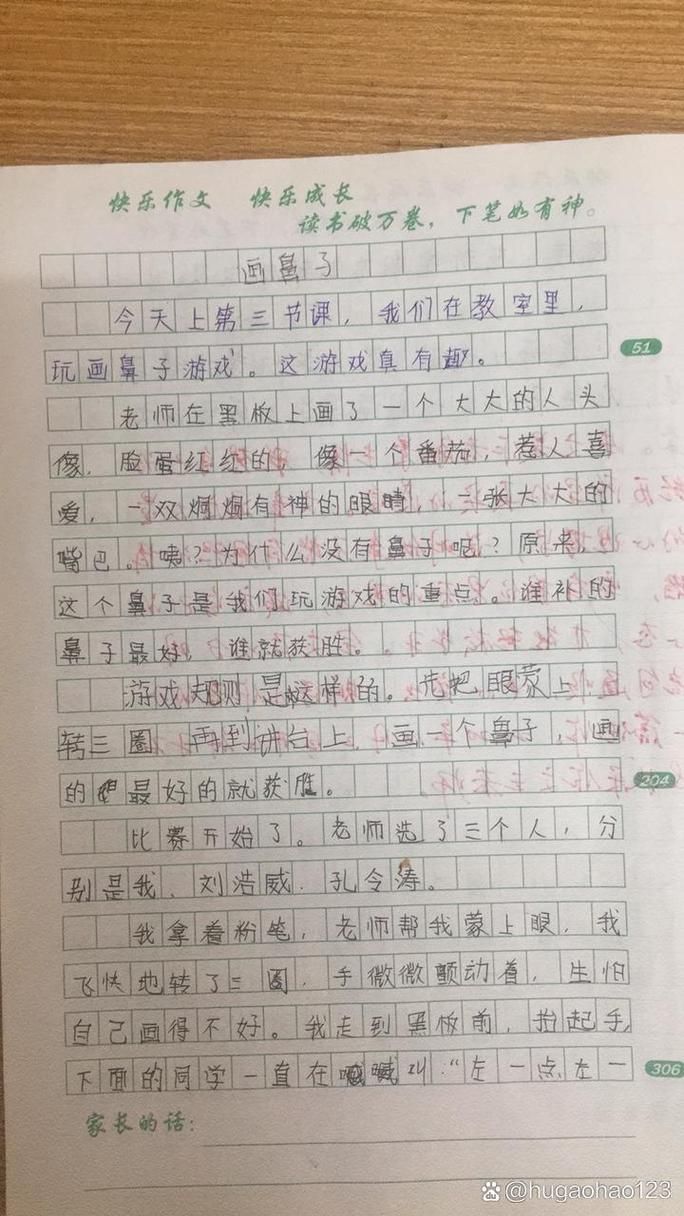 快乐作文 快乐成长
读书破万卷，下笔如有神。
画鼻子
今天上第三节课，我们在教室里，
玩画鼻子游戏。这游戏真有趣。
51
老师在黑板上画了一个大大的人头
像，脸蛋红红的，像一个番茄，惹人喜
爱，一双炯炯有神的眼睛，一张大大的
嘴巴。咦？为什么没有鼻子呢？原来，
这个鼻子是我们玩游戏的重点。谁补的
鼻子最好，谁就获胜。
游戏规则是这样的。先把眼蒙上，
转三圈，再到讲台上，画一个鼻子，画
的最好的就获胜。
204
比赛开始了。老师选了三个人，分
别是我、刘浩威、孔令涛。
我拿着粉笔，老师帮我蒙上眼，我
飞快地转了三圈，手微微颤动着，生怕
自己画得不好。我走到黑板前，抬起手，
下面的同学一直在喊叫：“左一点左一
306
家长的话：
@hugaohao123